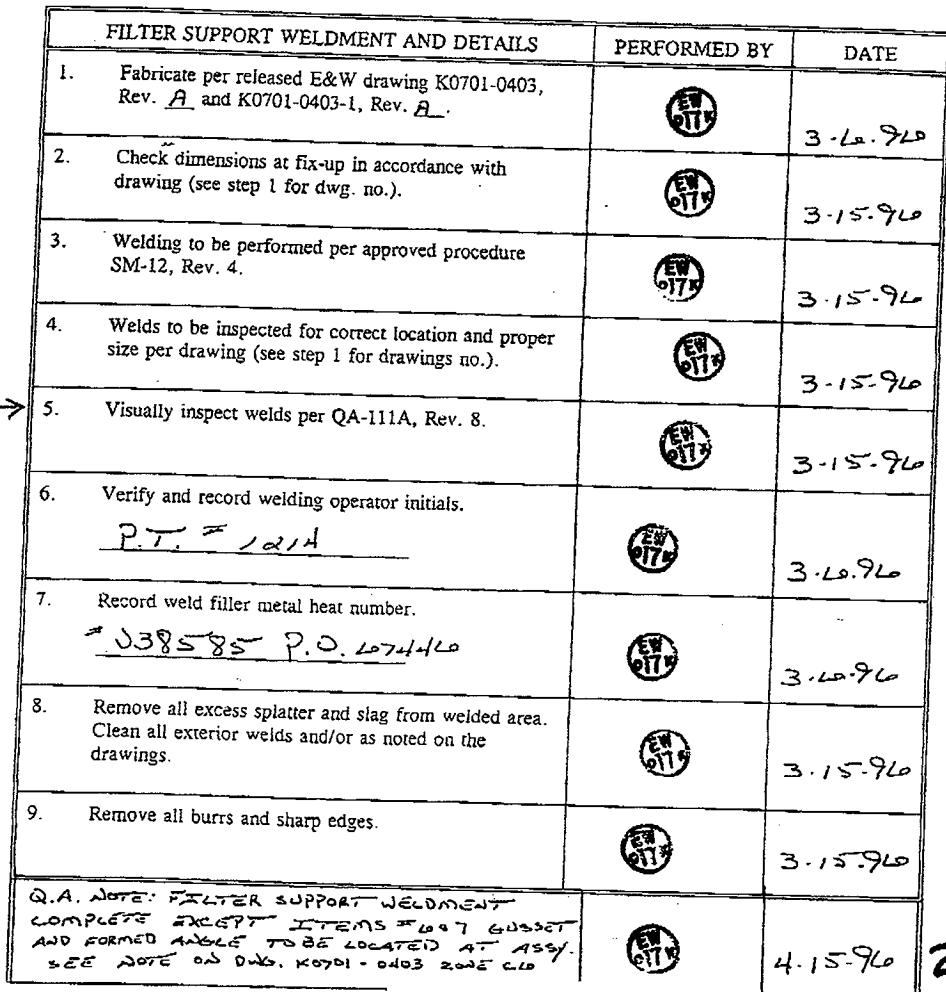 FILTER SUPPORT WELDMENT AND DETAILS PERFORMED BY DATE
1. Fabricate per released E&W drawing K0701-0403,
Rev. A and K0701-0403-1, Rev. A.
EW 017K
3-6-96
2. Check dimensions at fix-up in accordance with
drawing (see step 1 for dwg. no.).
EW 017K
3-15-96
3. Welding to be performed per approved procedure
SM-12, Rev. 4.
EW 017K
3-15-96
4. Welds to be inspected for correct location and proper
size per drawing (see step 1 for drawings no.).
EW 017K
3-15-96
→ 5. Visually inspect welds per QA-111A, Rev. 8.
EW 017K
3-15-96
6. Verify and record welding operator initials.
P.T. # 1214
EW 017K
3-6-96
7. Record weld filler metal heat number.
# J38585 P.O. 67446
EW 017K
3-6-96
8. Remove all excess splatter and slag from welded area.
Clean all exterior welds and/or as noted on the
drawings.
EW 017K
3-15-96
9. Remove all burrs and sharp edges.
EW 017K
3-15-96
Q.A. NOTE: FILTER SUPPORT WELDMENT
COMPLETE EXCEPT ITEMS # 6&7 GUSSET
AND FORMED ANGLE TO BE LOCATED AT ASSY.
SEE NOTE ON DWG. K0701-0403 ZONE C6
EW 017K
4-15-96